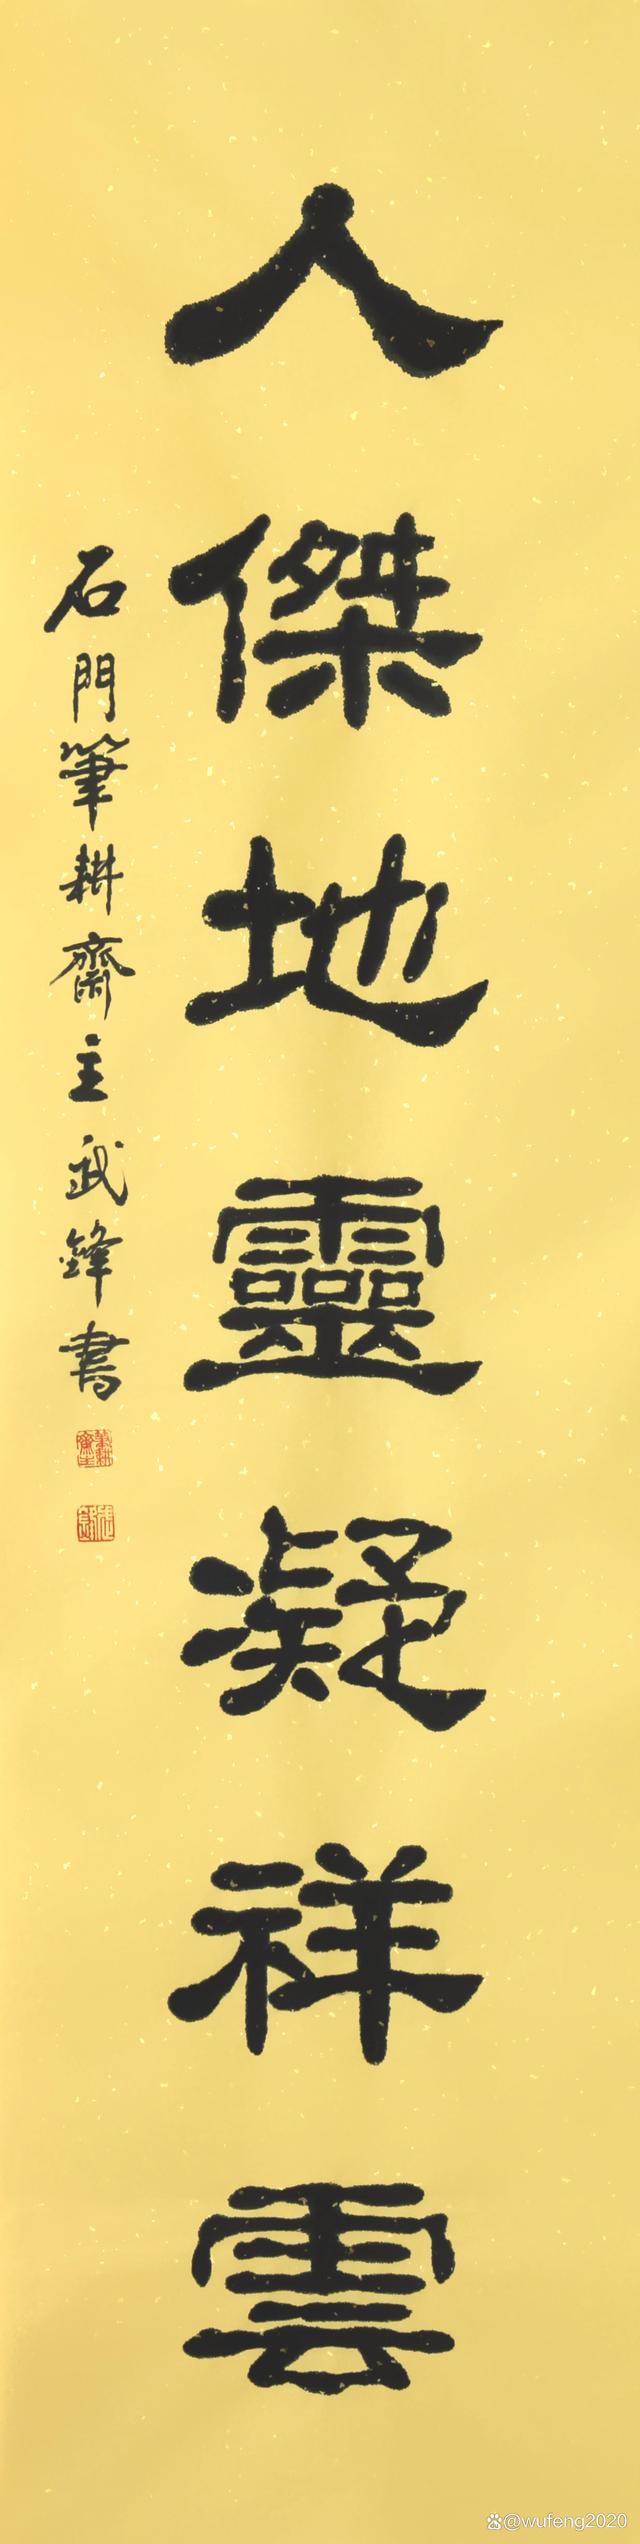 人傑地靈凝祥雲
石門筆耕齋主武鋒書
筆耕齋主
@wufeng2020